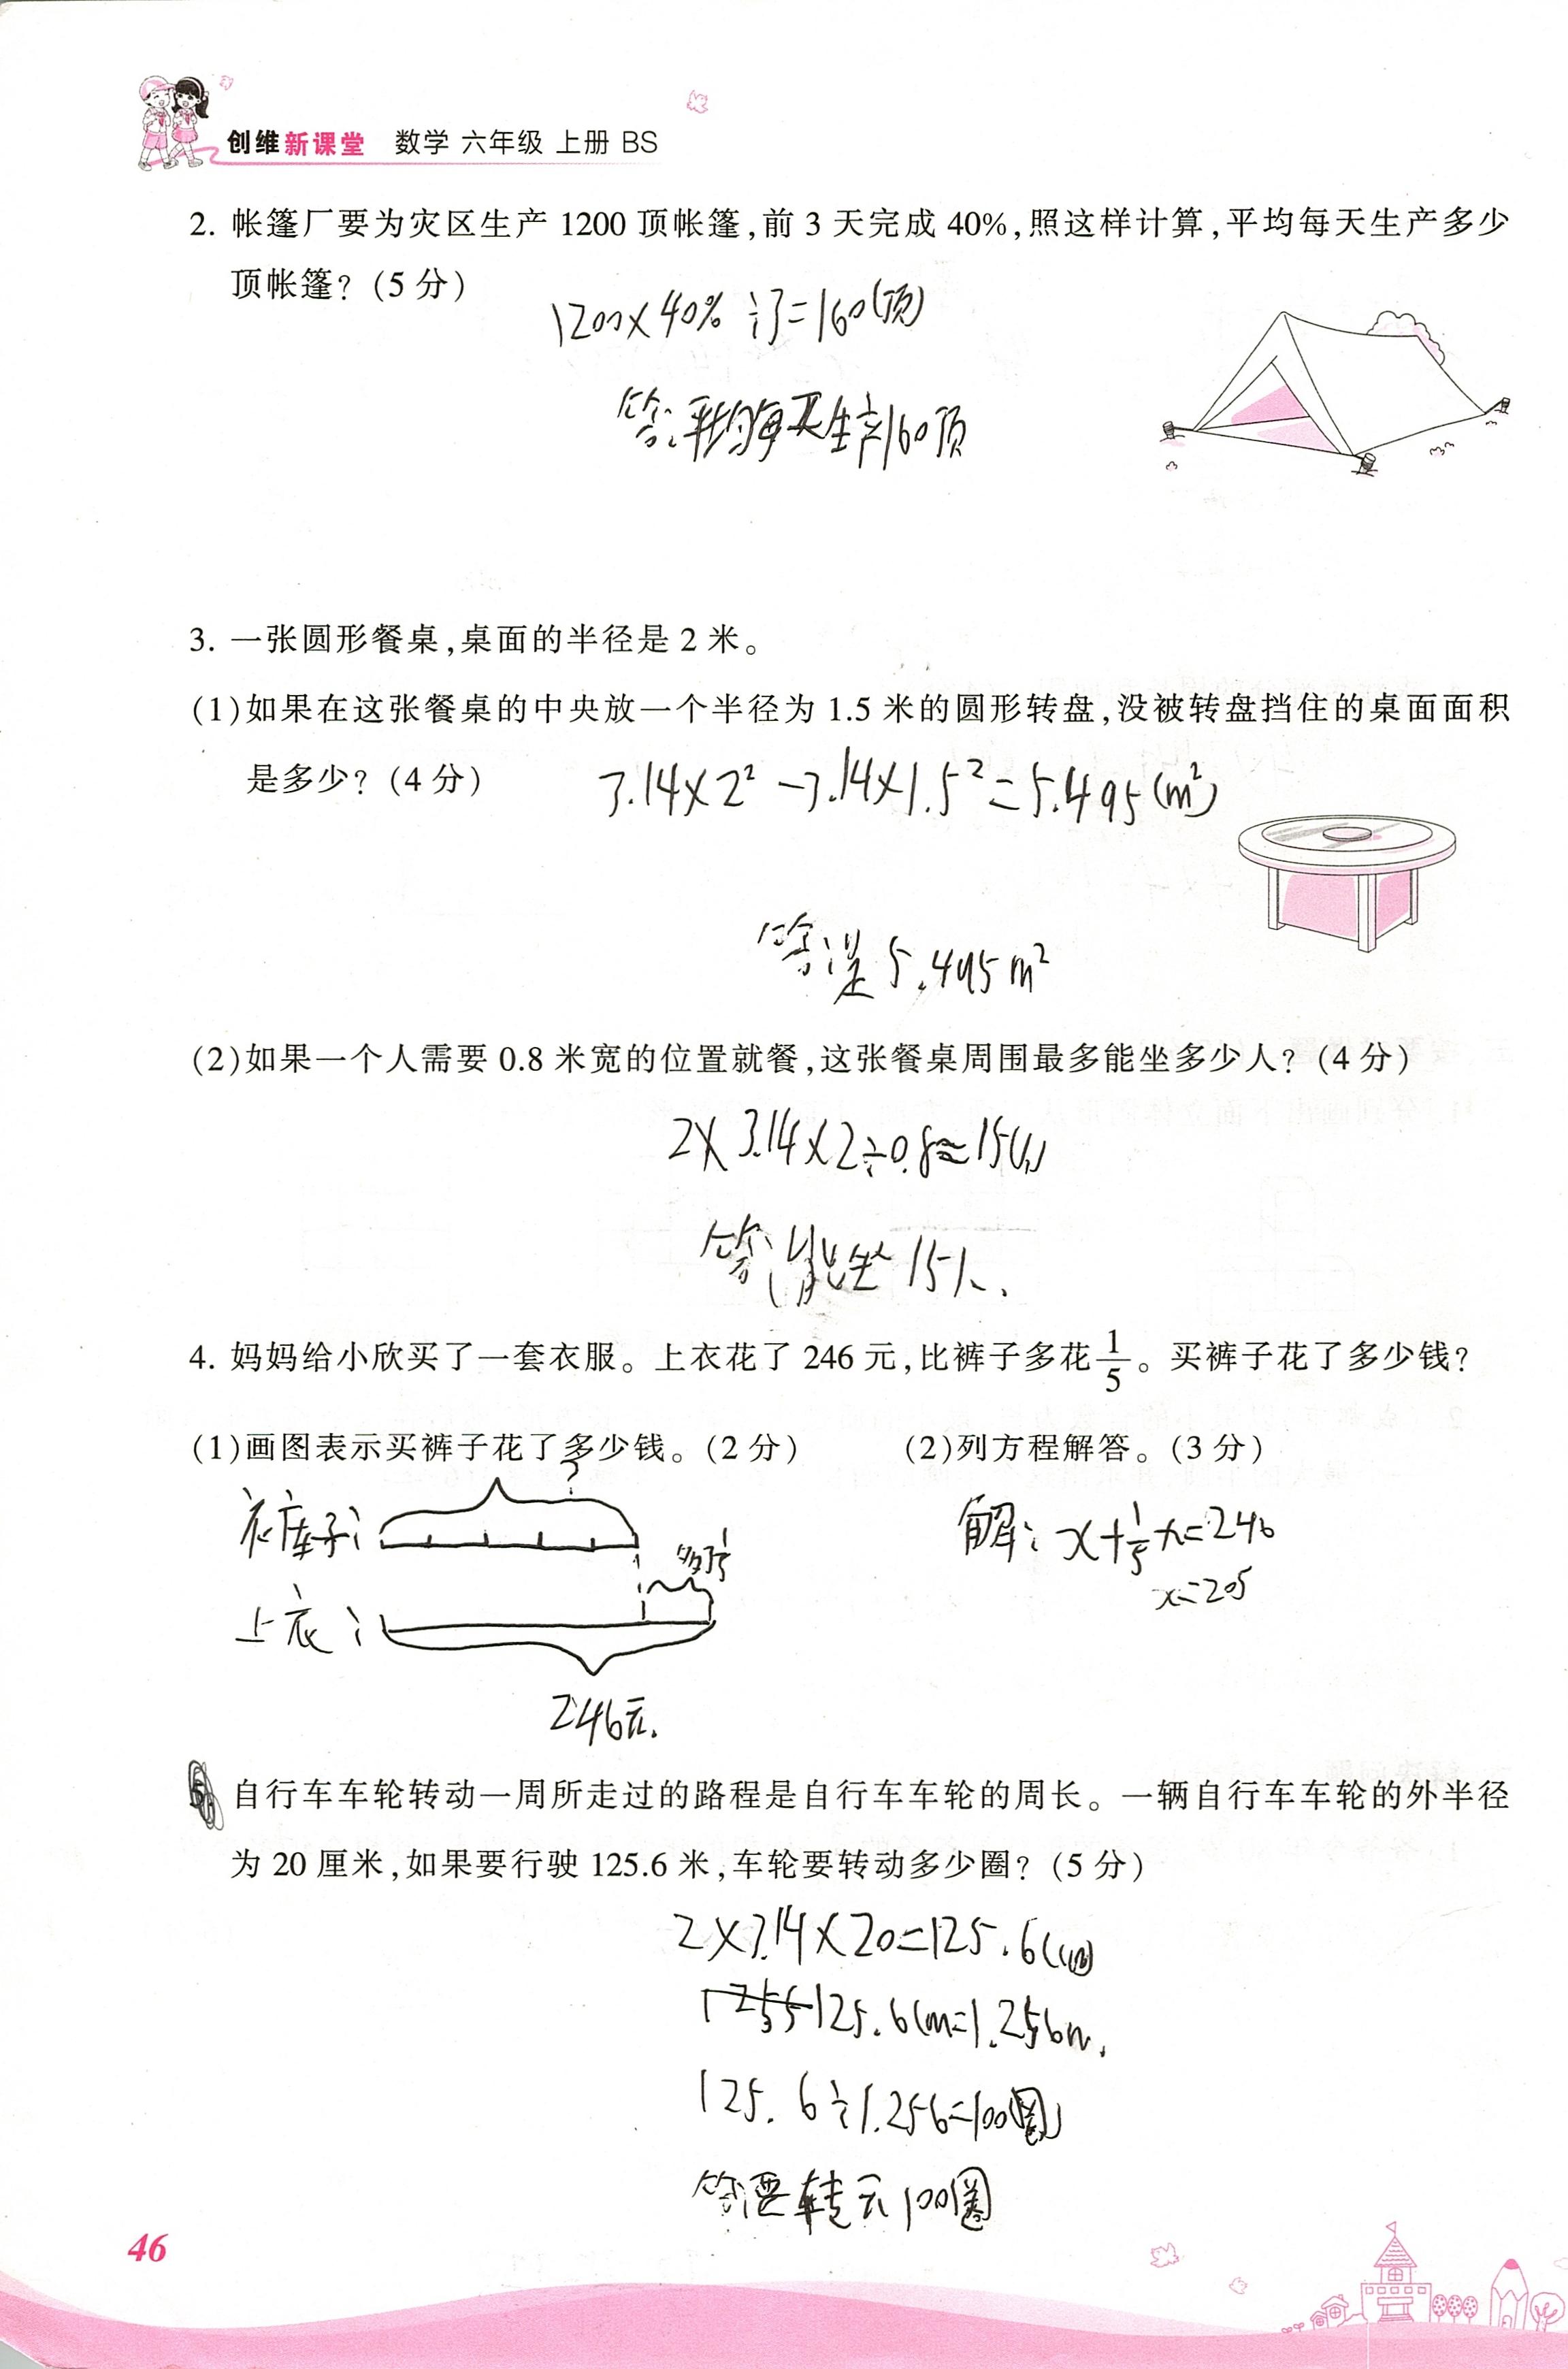 创维新课堂 数学 六年级 上册 BS
2. 帐篷厂要为灾区生产 1200 顶帐篷,前 3 天完成 40%,照这样计算,平均每天生产多少
顶帐篷?(5 分)
1200×40%÷3=160(顶)
答:平均每天生产160顶
3. 一张圆形餐桌,桌面的半径是 2 米。
(1)如果在这张餐桌的中央放一个半径为 1.5 米的圆形转盘,没被转盘挡住的桌面面积
是多少?(4 分)
3.14×2²-3.14×1.5²=5.495(m²)
答:是5.495m²
(2)如果一个人需要 0.8 米宽的位置就餐,这张餐桌周围最多能坐多少人?(4 分)
2×3.14×2÷0.8≈15(人)
答:能坐15人.
4. 妈妈给小欣买了一套衣服。上衣花了 246 元,比裤子多花1/5。买裤子花了多少钱?
(1)画图表示买裤子花了多少钱。(2 分) (2)列方程解答。(3 分)
?
裤子:
多1/5
上衣:
246元.
解:x+1/5x=246
x=205
5. 自行车车轮转动一周所走过的路程是自行车车轮的周长。一辆自行车车轮的外半径
为 20 厘米,如果要行驶 125.6 米,车轮要转动多少圈?(5 分)
2×3.14×20=125.6(cm)
125.6cm=1.256m.
125.6÷1.256=100(圈)
答:要转云100圈
46